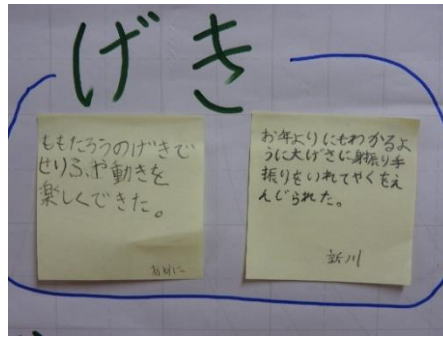 げき
ももたろうのげきで
せりふや動きを
楽しくできた。
お年よりにもわかるよ
うに大げさに身振り手
振りをいれてやくをえ
んじられた。
新川